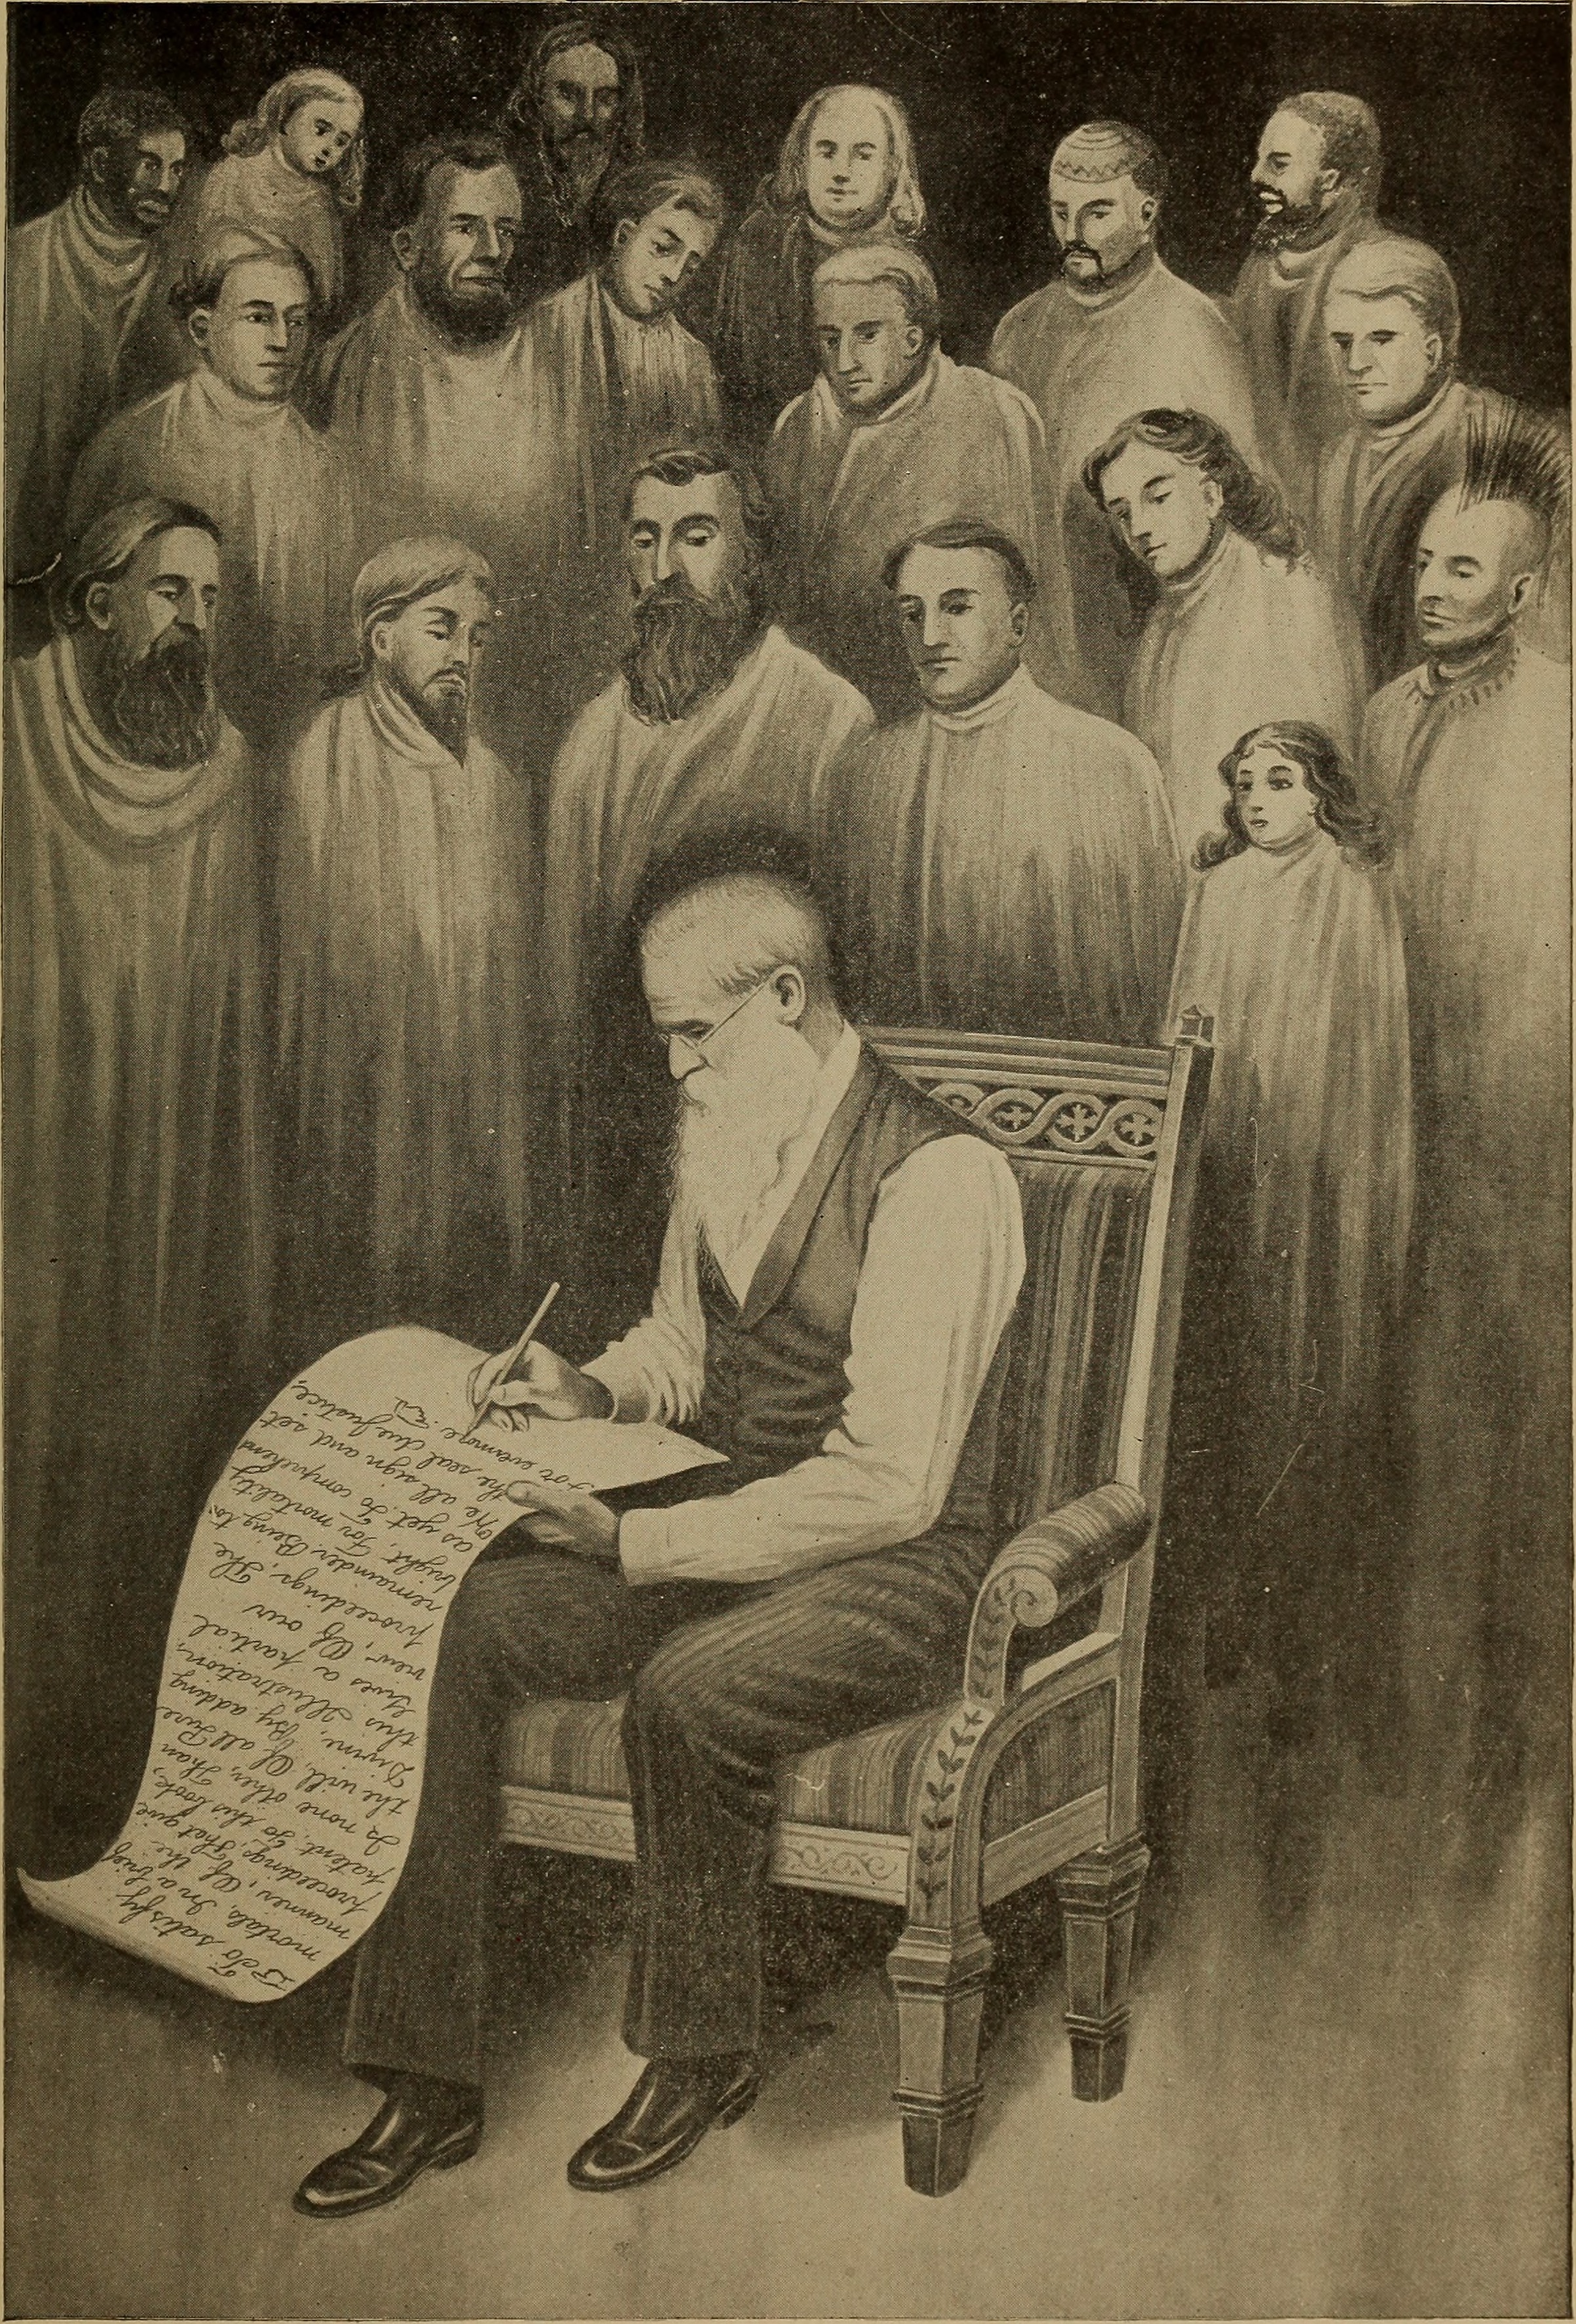 To satisfy
mortals, In a brief
manner, Of the
proceedings, That give
patent, To this book,
Is none other, Than
the will, Of all Pure
Divine, By adding
this Illustration,
Gives a partial
view, Of our
proceedings, The
remainder, Being to
bright, For mortality
as yet, To comprehend
We all sign and set
the seal due Justice,
For evermore.